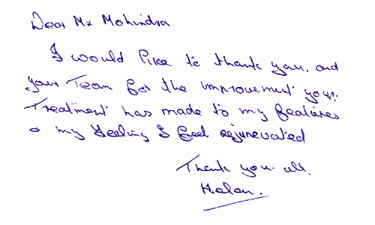 Dear Mr Mohindra
I would like to thank you. and
your Team for the improvement your
Treatment has made to my features
& my feeling I feel rejunevated
Thank you all.
Helen.